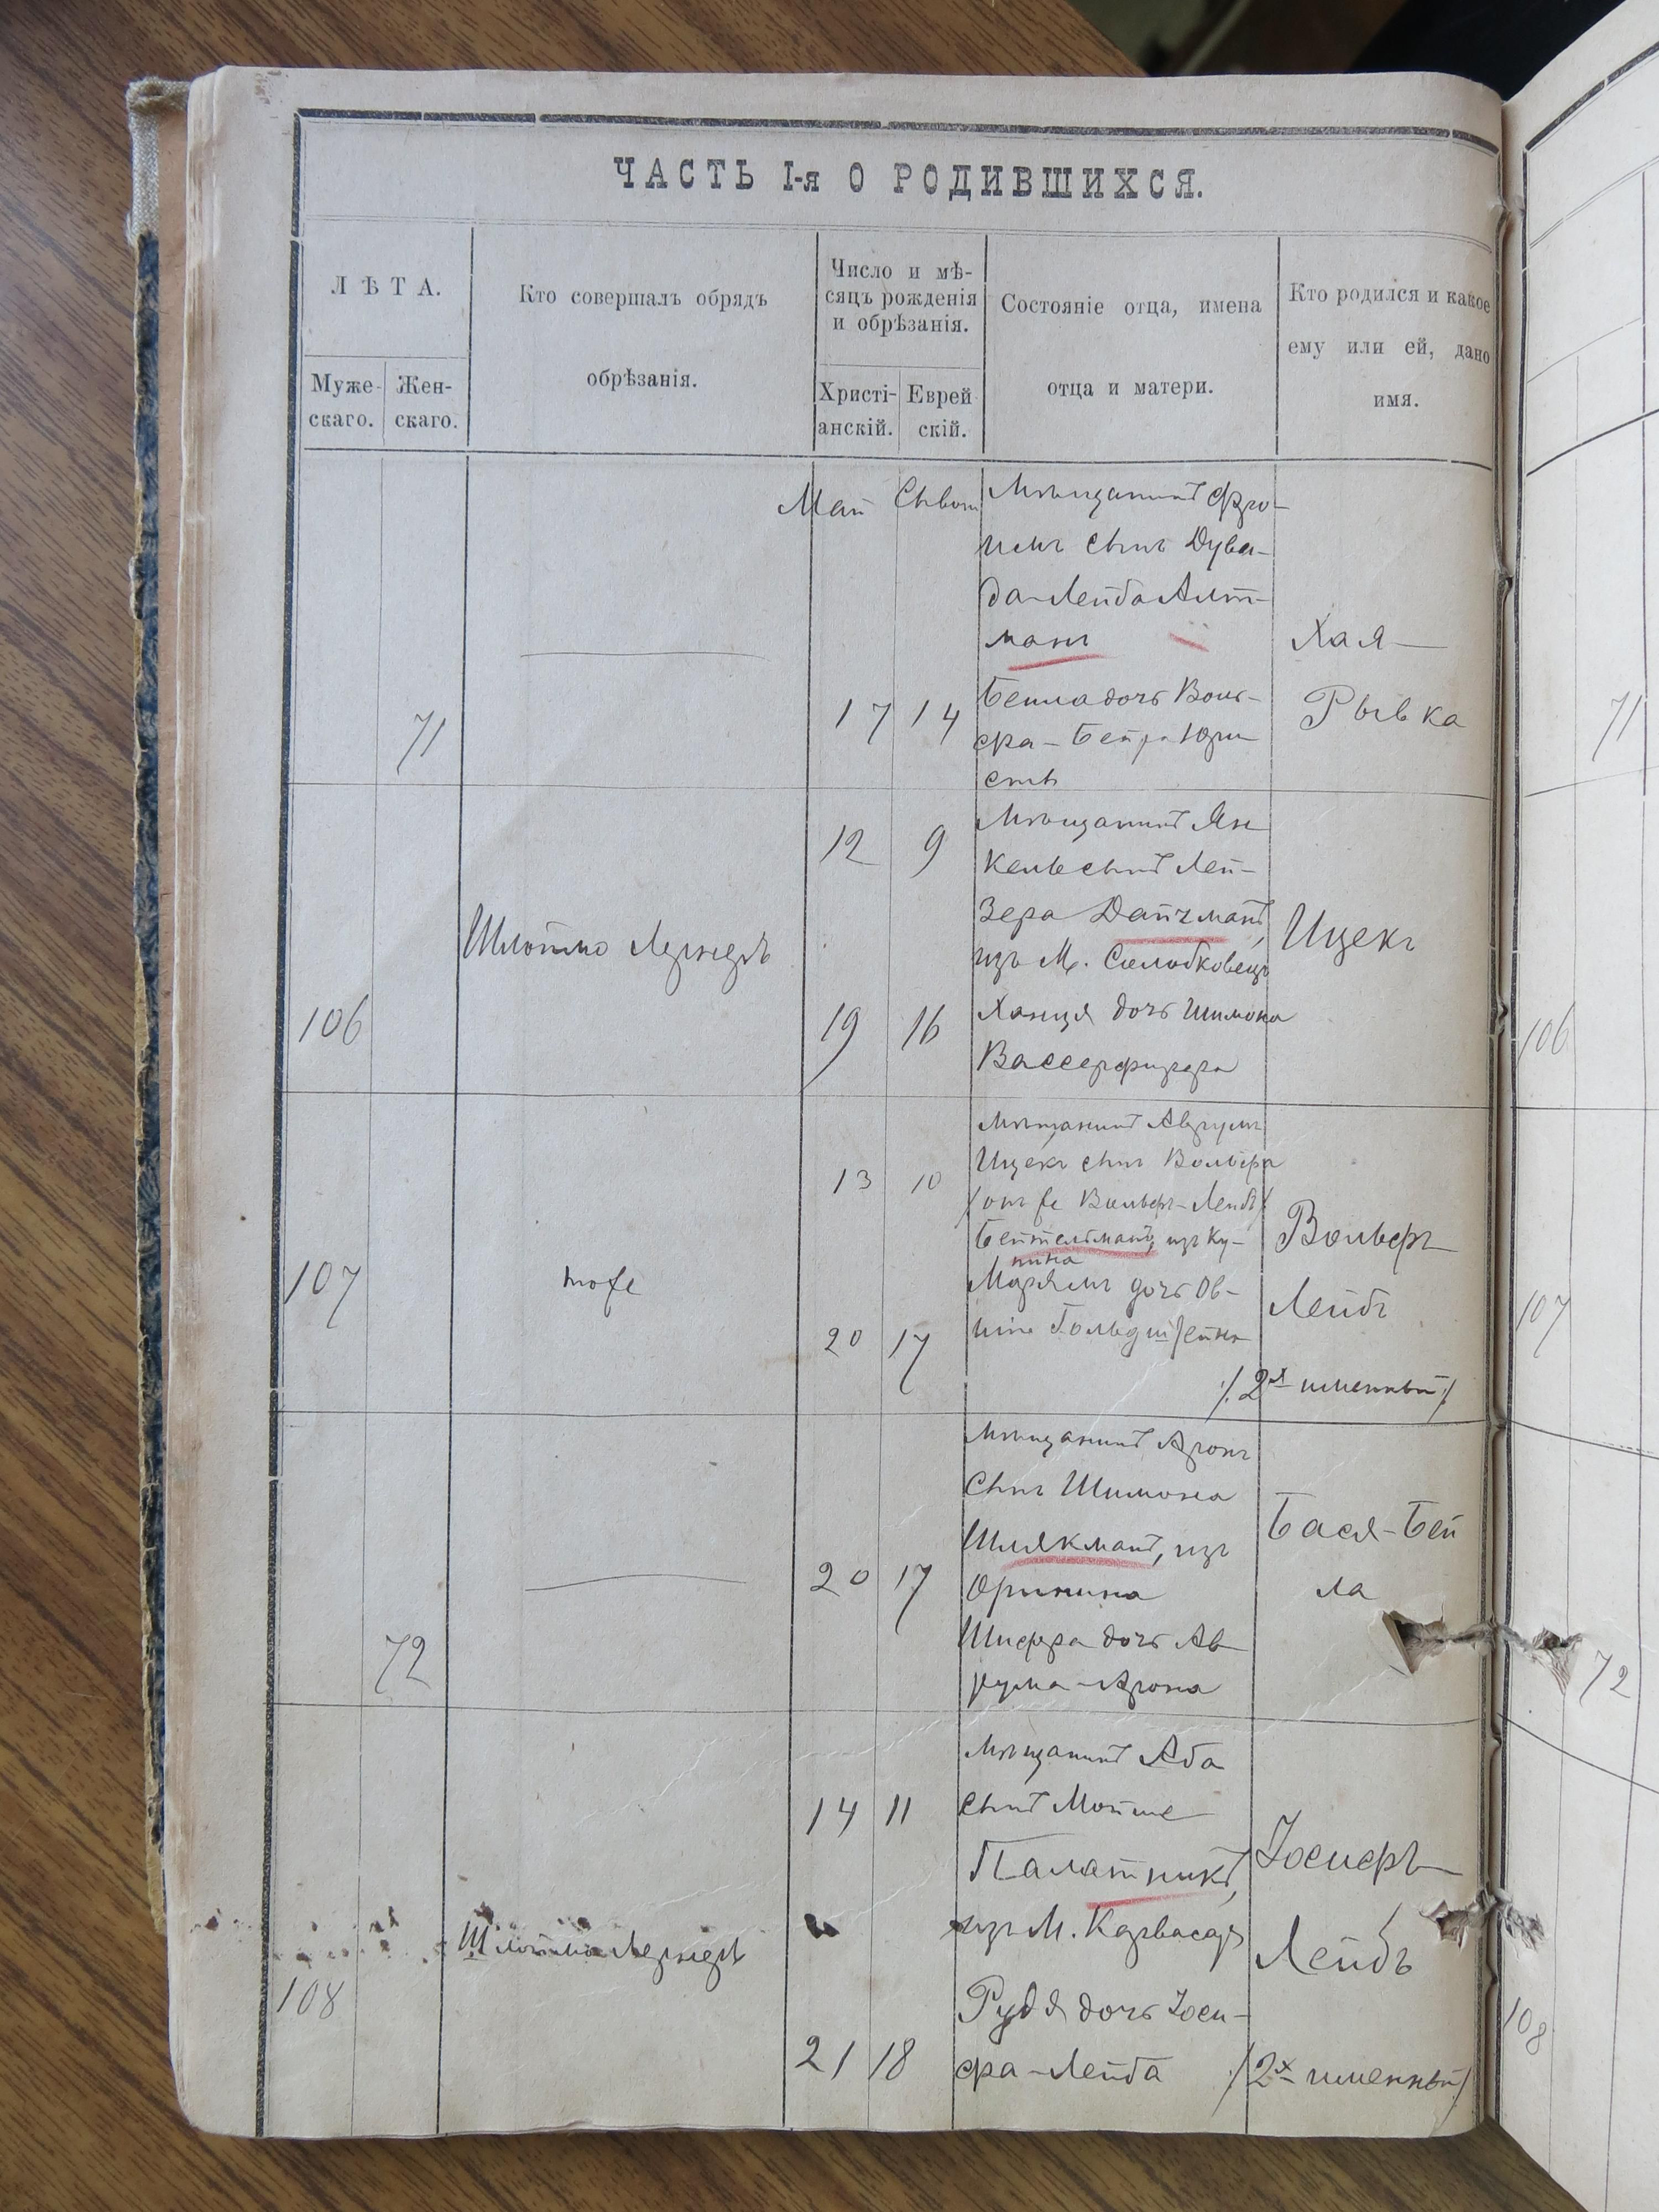 ЧАСТЬ I-я О РОДИВШИХСЯ.
ЛѢТА.
Муже-
скаго.
Жен-
скаго.
Кто совершалъ обрядъ
обрѣзанія.
Число и мѣ-
сяцъ рожденія
и обрѣзанія.
Христі-
анскій.
Еврей
скій.
Состояніе отца, имена
отца и матери.
Кто родился и какое
ему или ей, дано
имя.
Май
71
17
14
Мѣщанинъ Фро-
имъ сынъ Дуви-
да-Лейба Альт-
манъ
Бейла дочь Воль-
фа-Бейра
Хая
Рывка
71
106
Шлоймо Лернеръ
12
9
19
16
Мѣщанинъ Ян
кель сынъ Лей-
зера Дайчманъ,
изъ М. Солобковец
Ханця дочь Шимона
Ицекъ
106
107
тоже
13
10
20
17
Мѣщанинъ Аврумъ
Ицекъ сынъ Вольфа
/онъ же Вольфъ-Лейбъ/
Бейтельманъ, изъ Ку-
пина
Марьямъ дочь Ов-
шіи Гольдштейна
Вольфъ
Лейбъ
/2х именный/
107
72
20
17
Мѣщанинъ Аронъ
сынъ Шимона
Шлякманъ, изъ
Оринина
Шифра дочь Ав
рума-Арона
Бася-Бей
ла
72
108
Шлойма Лернеръ
14
11
21
18
Мѣщанинъ Аба
сынъ Мойше
Палатникъ,
изъ М. Карвасар
Рудя дочь Іоси-
фа-Лейба
Іосифъ
Лейбъ
/2х именный/
108